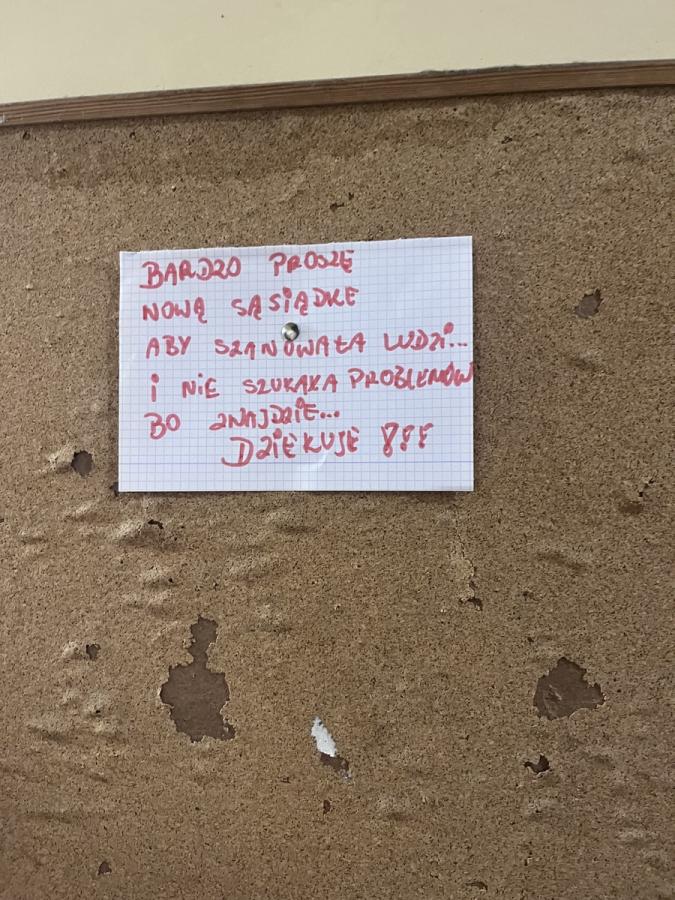 BARDZO PROSZĘ
NOWĄ SĄSIĄDKE
ABY SZANOWAŁA LUDZI...
I NIE SZUKAŁA PROBLEMÓW
BO ZNAJDZIE...
DZIĘKUJE !!!